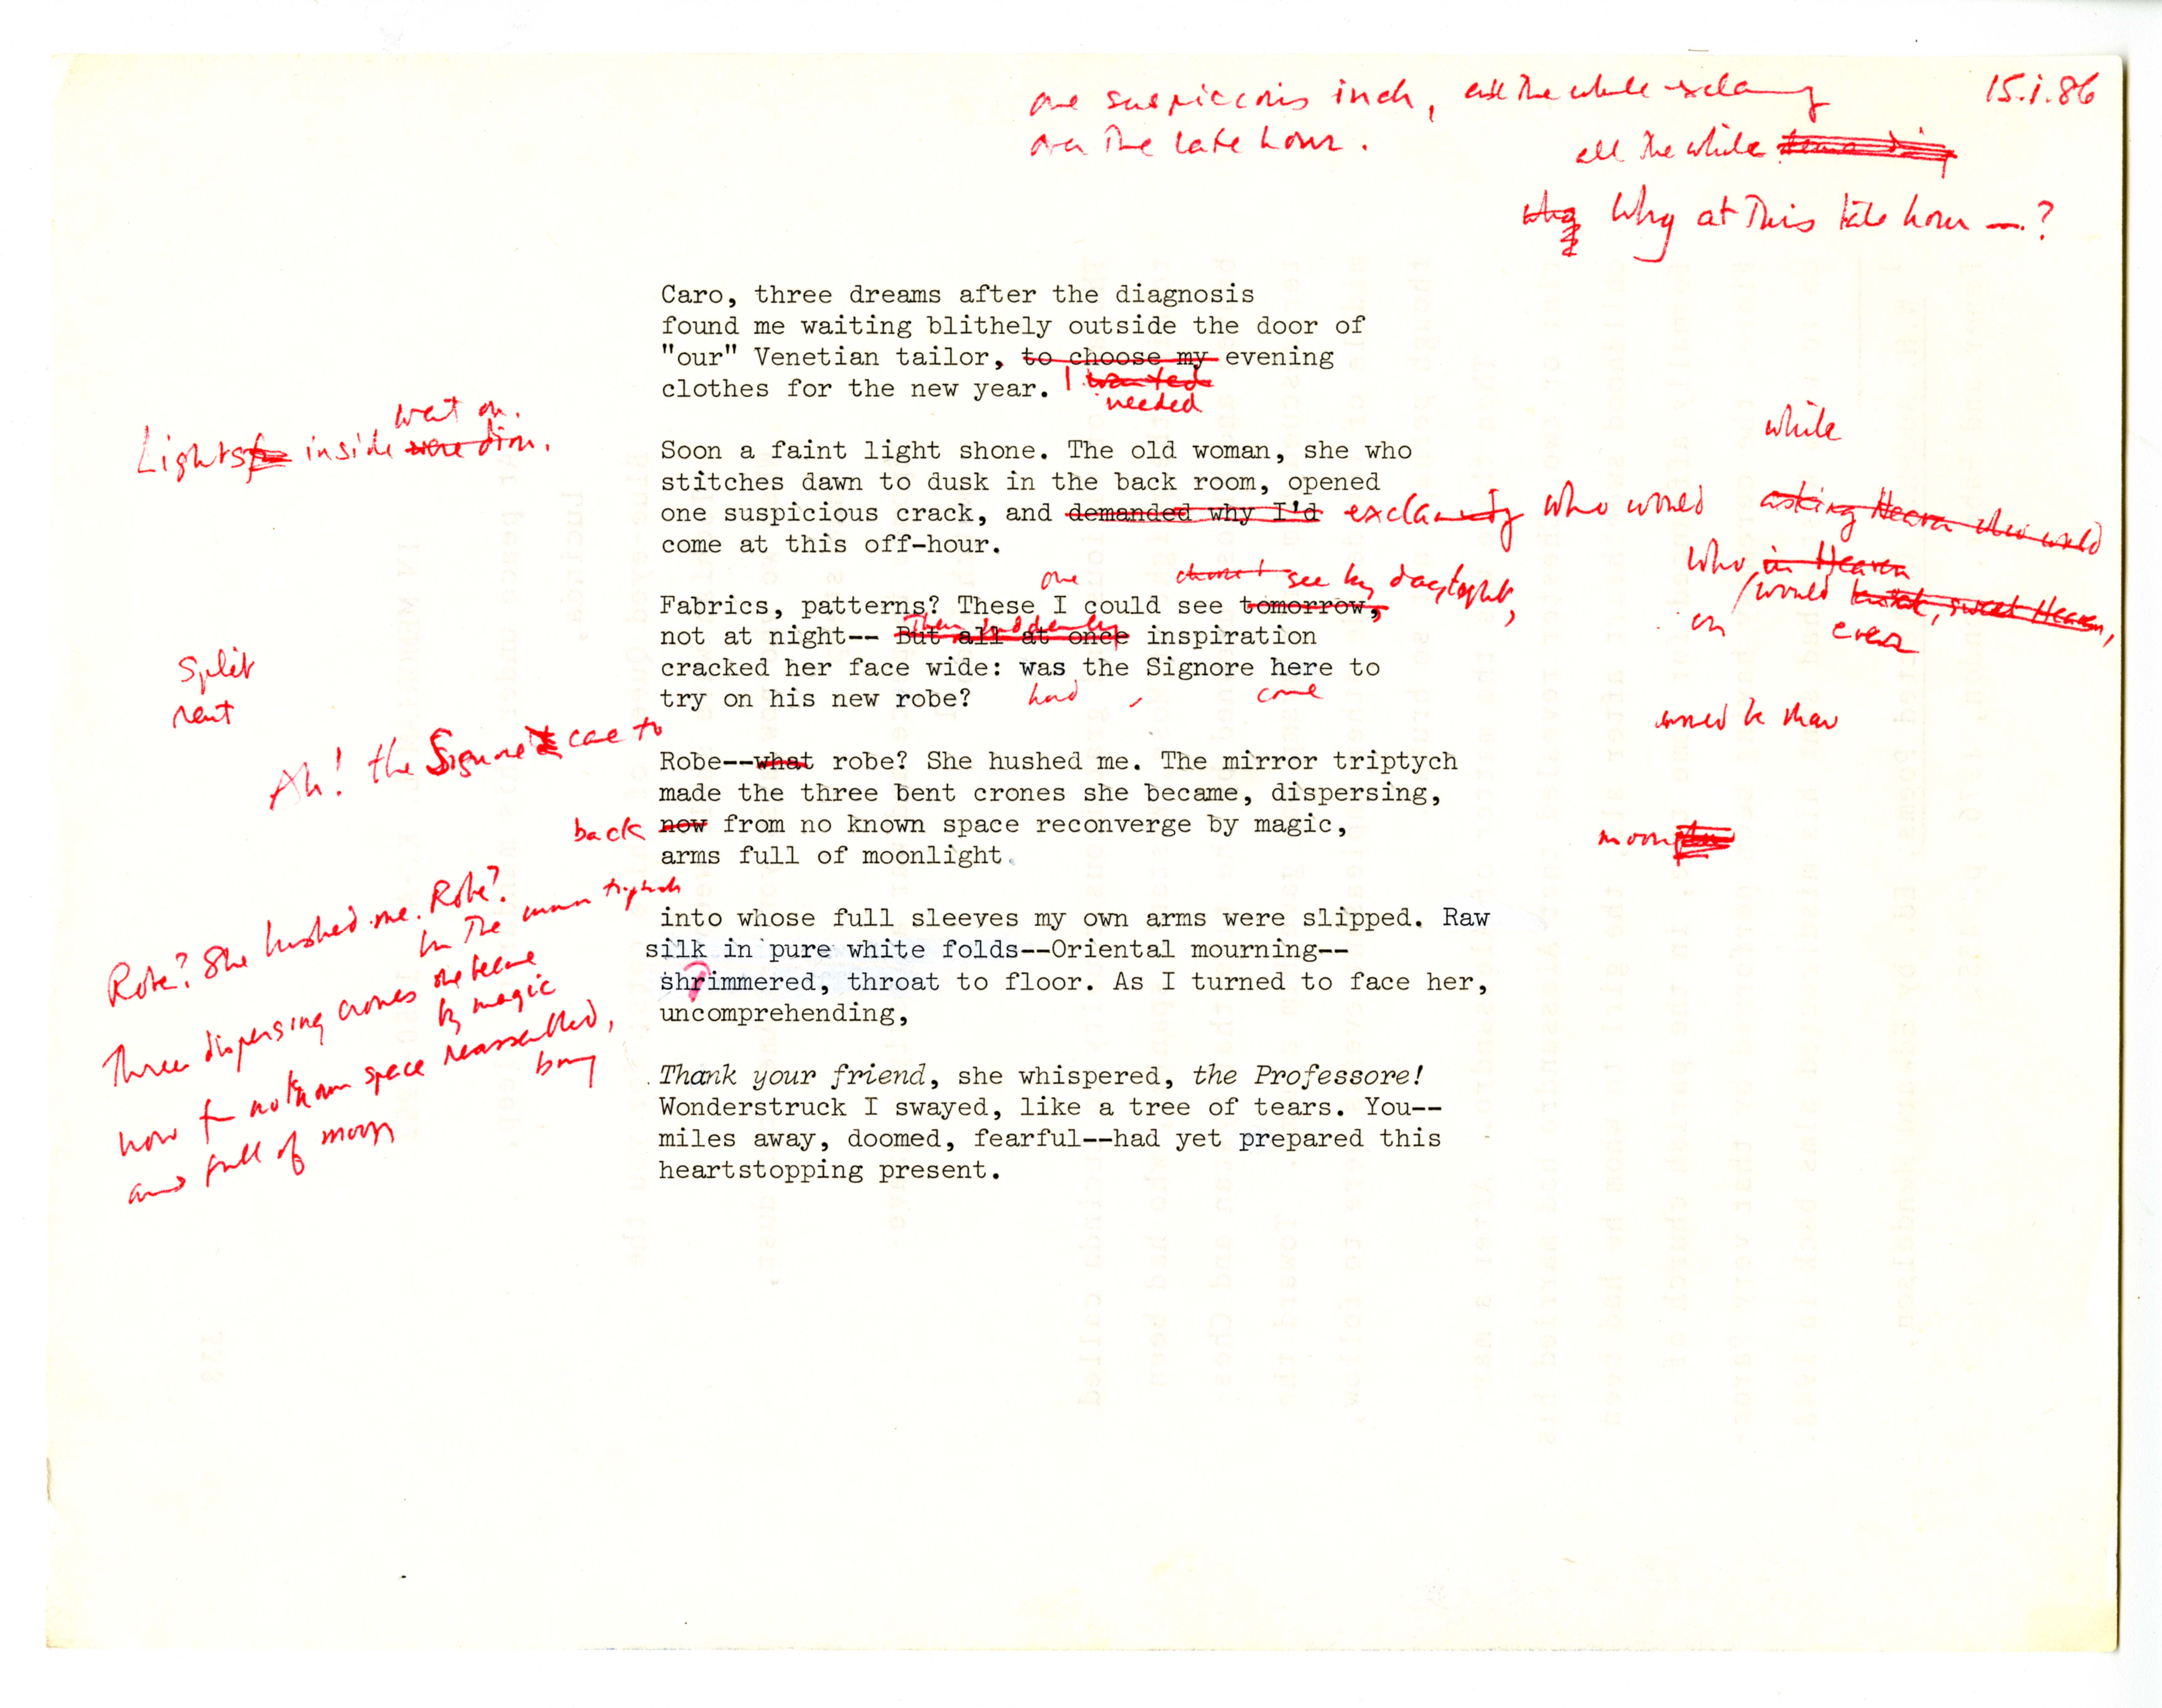 one suspiccois inch, all the while exclaming 15.i.86
over the late hour. all the while
why Why at this late hour —.?
Caro, three dreams after the diagnosis
found me waiting blithely outside the door of
"our" Venetian tailor, to choose my evening
clothes for the new year. I wanted
needed
went on.
Lights inside were dim.
while
Soon a faint light shone. The old woman, she who
stitches dawn to dusk in the back room, opened
one suspicious crack, and demanded why I'd exclaming who would asking Heaven who would
come at this off-hour.
who in Heaven
would sweet Heaven,
on even
one see by daylight,
Fabrics, patterns? These I could see tomorrow,
Then suddenly
not at night-- But all at once inspiration
cracked her face wide: was the Signore here to
try on his new robe? had , come
split
rent
Ah! the Signore to
Robe--what robe? She hushed me. The mirror triptych
made the three bent crones she became, dispersing,
back now from no known space reconverge by magic,
arms full of moonlight.
moon
Robe? She hushed me. Robe?
In the mirror triptych
Three dispersing crones she became
by magic
now fr no known space reassembled,
bring
arms full of moon
into whose full sleeves my own arms were slipped. Raw
silk in pure white folds--Oriental mourning--
shrimmered, throat to floor. As I turned to face her,
uncomprehending,
Thank your friend, she whispered, the Professore!
Wonderstruck I swayed, like a tree of tears. You--
miles away, doomed, fearful--had yet prepared this
heartstopping present.